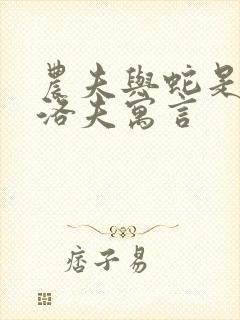 農夫與蛇是
洛夫寓言
痞子易